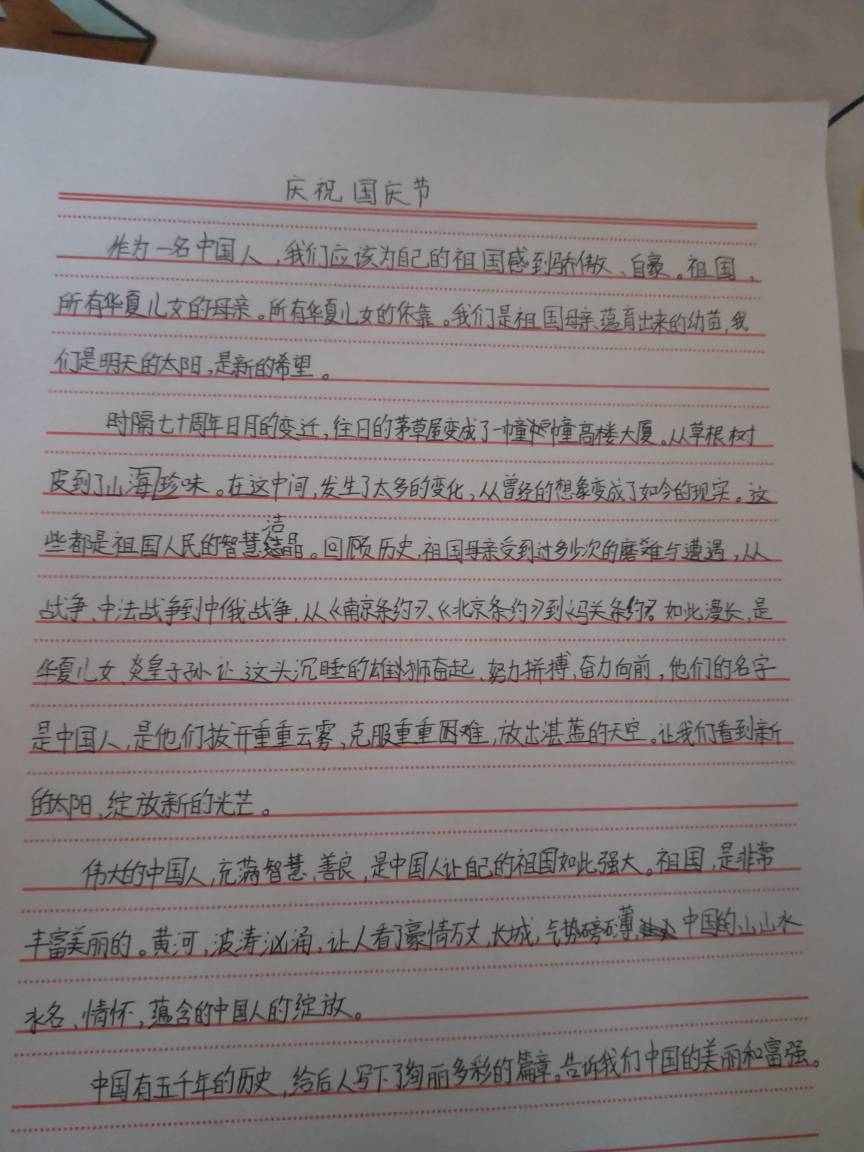 庆祝国庆节
作为一名中国人，我们应该为自己的祖国感到骄傲、自豪。祖国，
所有华夏儿女的母亲。所有华夏儿女的依靠。我们是祖国母亲蕴育出来的幼苗，我
们是明天的太阳，是新的希望。
时隔七十周年日月的变迁，往日的茅草屋变成了一幢幢高楼大厦。从草根树
皮到了山海珍味。在这中间，发生了太多的变化，从曾经的想象变成了如今的现实。这
些都是祖国人民的智慧洁晶。回顾历史，祖国母亲受到过多少次的磨难与遭遇，从
战争、中法战争到中俄战争，从《南京条约》、《北京条约》到《马关条约》。如此漫长，是
华夏儿女、炎皇子孙让这头沉睡的雄狮奋起、努力拼搏，奋力向前，他们的名字
是中国人，是他们拨开重重云雾，克服重重困难，放出湛蓝的天空。让我们看到新
的太阳，绽放新的光芒。
伟大的中国人，充满智慧、善良，是中国人让自己的祖国如此强大。祖国，是非常
丰富美丽的。黄河，波涛汹涌，让人看了豪情万丈，长城，气势磅薄，中国的山山水
水名、情怀，蕴含的中国人的绽放。
中国有五千年的历史，给后人写下了绚丽多彩的篇章。告诉我们中国的美丽和富强。